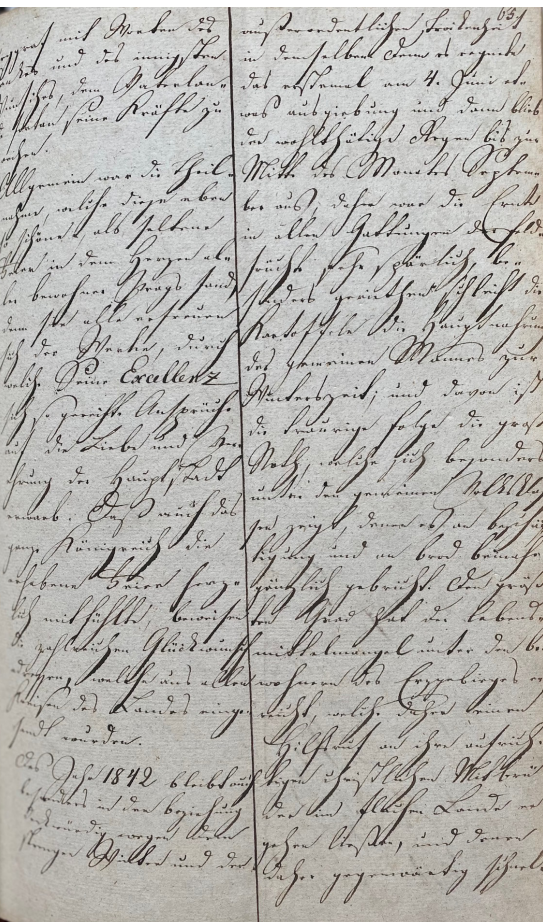 mit Worten des
und des innigsten
dem Vaterlan-
seine Kräfte zu
Allgemein war die Theil-
nahme, welche diese eben
so schöne, als seltene
Feier in dem Herzen al-
ler bewohner Prags fand,
denn sie alle erfreuen
sich der Werke, durch
welche Seine Excellenz
sich so gerechte Ansprüche
auf die Liebe und Ver-
ehrung der Hauptstadt
erwarb. Daß auch das
ganze Königreich die
erhebene Feier herz-
lich mitfühlte, beweisen
die zahlreichen Glückwunsch
welche aus allen
Kreisen des Landes einge-
sendt wurden.
Das Jahr 1842 bleibt auch
besonders in der beziehung
merkwürdig wegen dem
Winter und der
außerordentlichen Trockenheit
in demselben denn es regnete
das erstemal am 4. Juni et-
was ausgiebung und dann blieb
der wohlthätige Regen bis zur
Mitte des Monates Septem-
ber aus, daher war die Ernte
in allen Gattungen der Feld-
früchte sehr spärlich, be-
sonders geriethen schlecht die
Kartoffeln die Hauptnahrung
des gemeinen Mannes zur
Winterszeit; und davon ist
die traurige Folge die große
Noth, welche sich besonders
unter den gemeinen Volkskla-
ssen zeigt, denen es an beschäf-
tigung und an brod beinahe
gänzlich gebricht. Den größ-
ten Grad hat der Lebens-
mittelmangel unter den be-
wohnern des Erzgebirges er-
reicht, welche daher einen
Hilfsruf an ihre
christlichen Mitbrü-
der im flachen Lande er-
gehen ließen, und denen
daher gegenwärtig schnel-